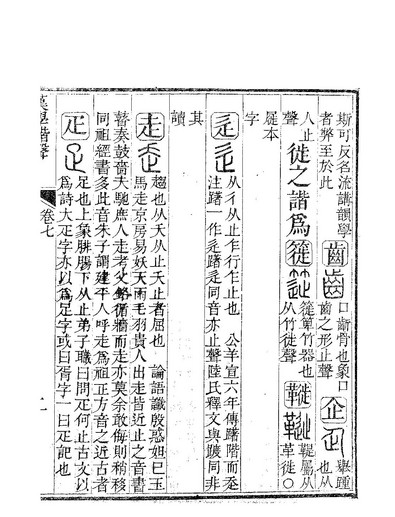 斯可反名流講韻學
者弊至於此
齒
口齗骨也象口
齒之形止聲
企
舉踵
也从
人止
聲
徙之諧為
簁
簁箄竹器也
从竹徙聲
鞮屬从
革徙○
聲
屣本
字
辵
从彳从止乍行乍止也 公羊宣六年傳躇階而
注躇一作辵躇辵同音亦止聲陸氏釋文與踱同非
其
讀
走
趨也从夭从止夭止者屈也 論語讖殷惑妲己玉
馬走京房易妖天雨毛羽貴人出走皆近止之音書
瞽奏鼓嗇夫馳庶人走考父銘循牆而走亦莫余敢侮則稍移
同祖經書多此音朱子謂建平人呼走為祖正方音之近古者
疋
足也上象腓腸下从止弟子職曰問疋何止古文以
為詩大疋字亦以為足字或曰胥字一曰疋記也
漢學諧聲
卷七